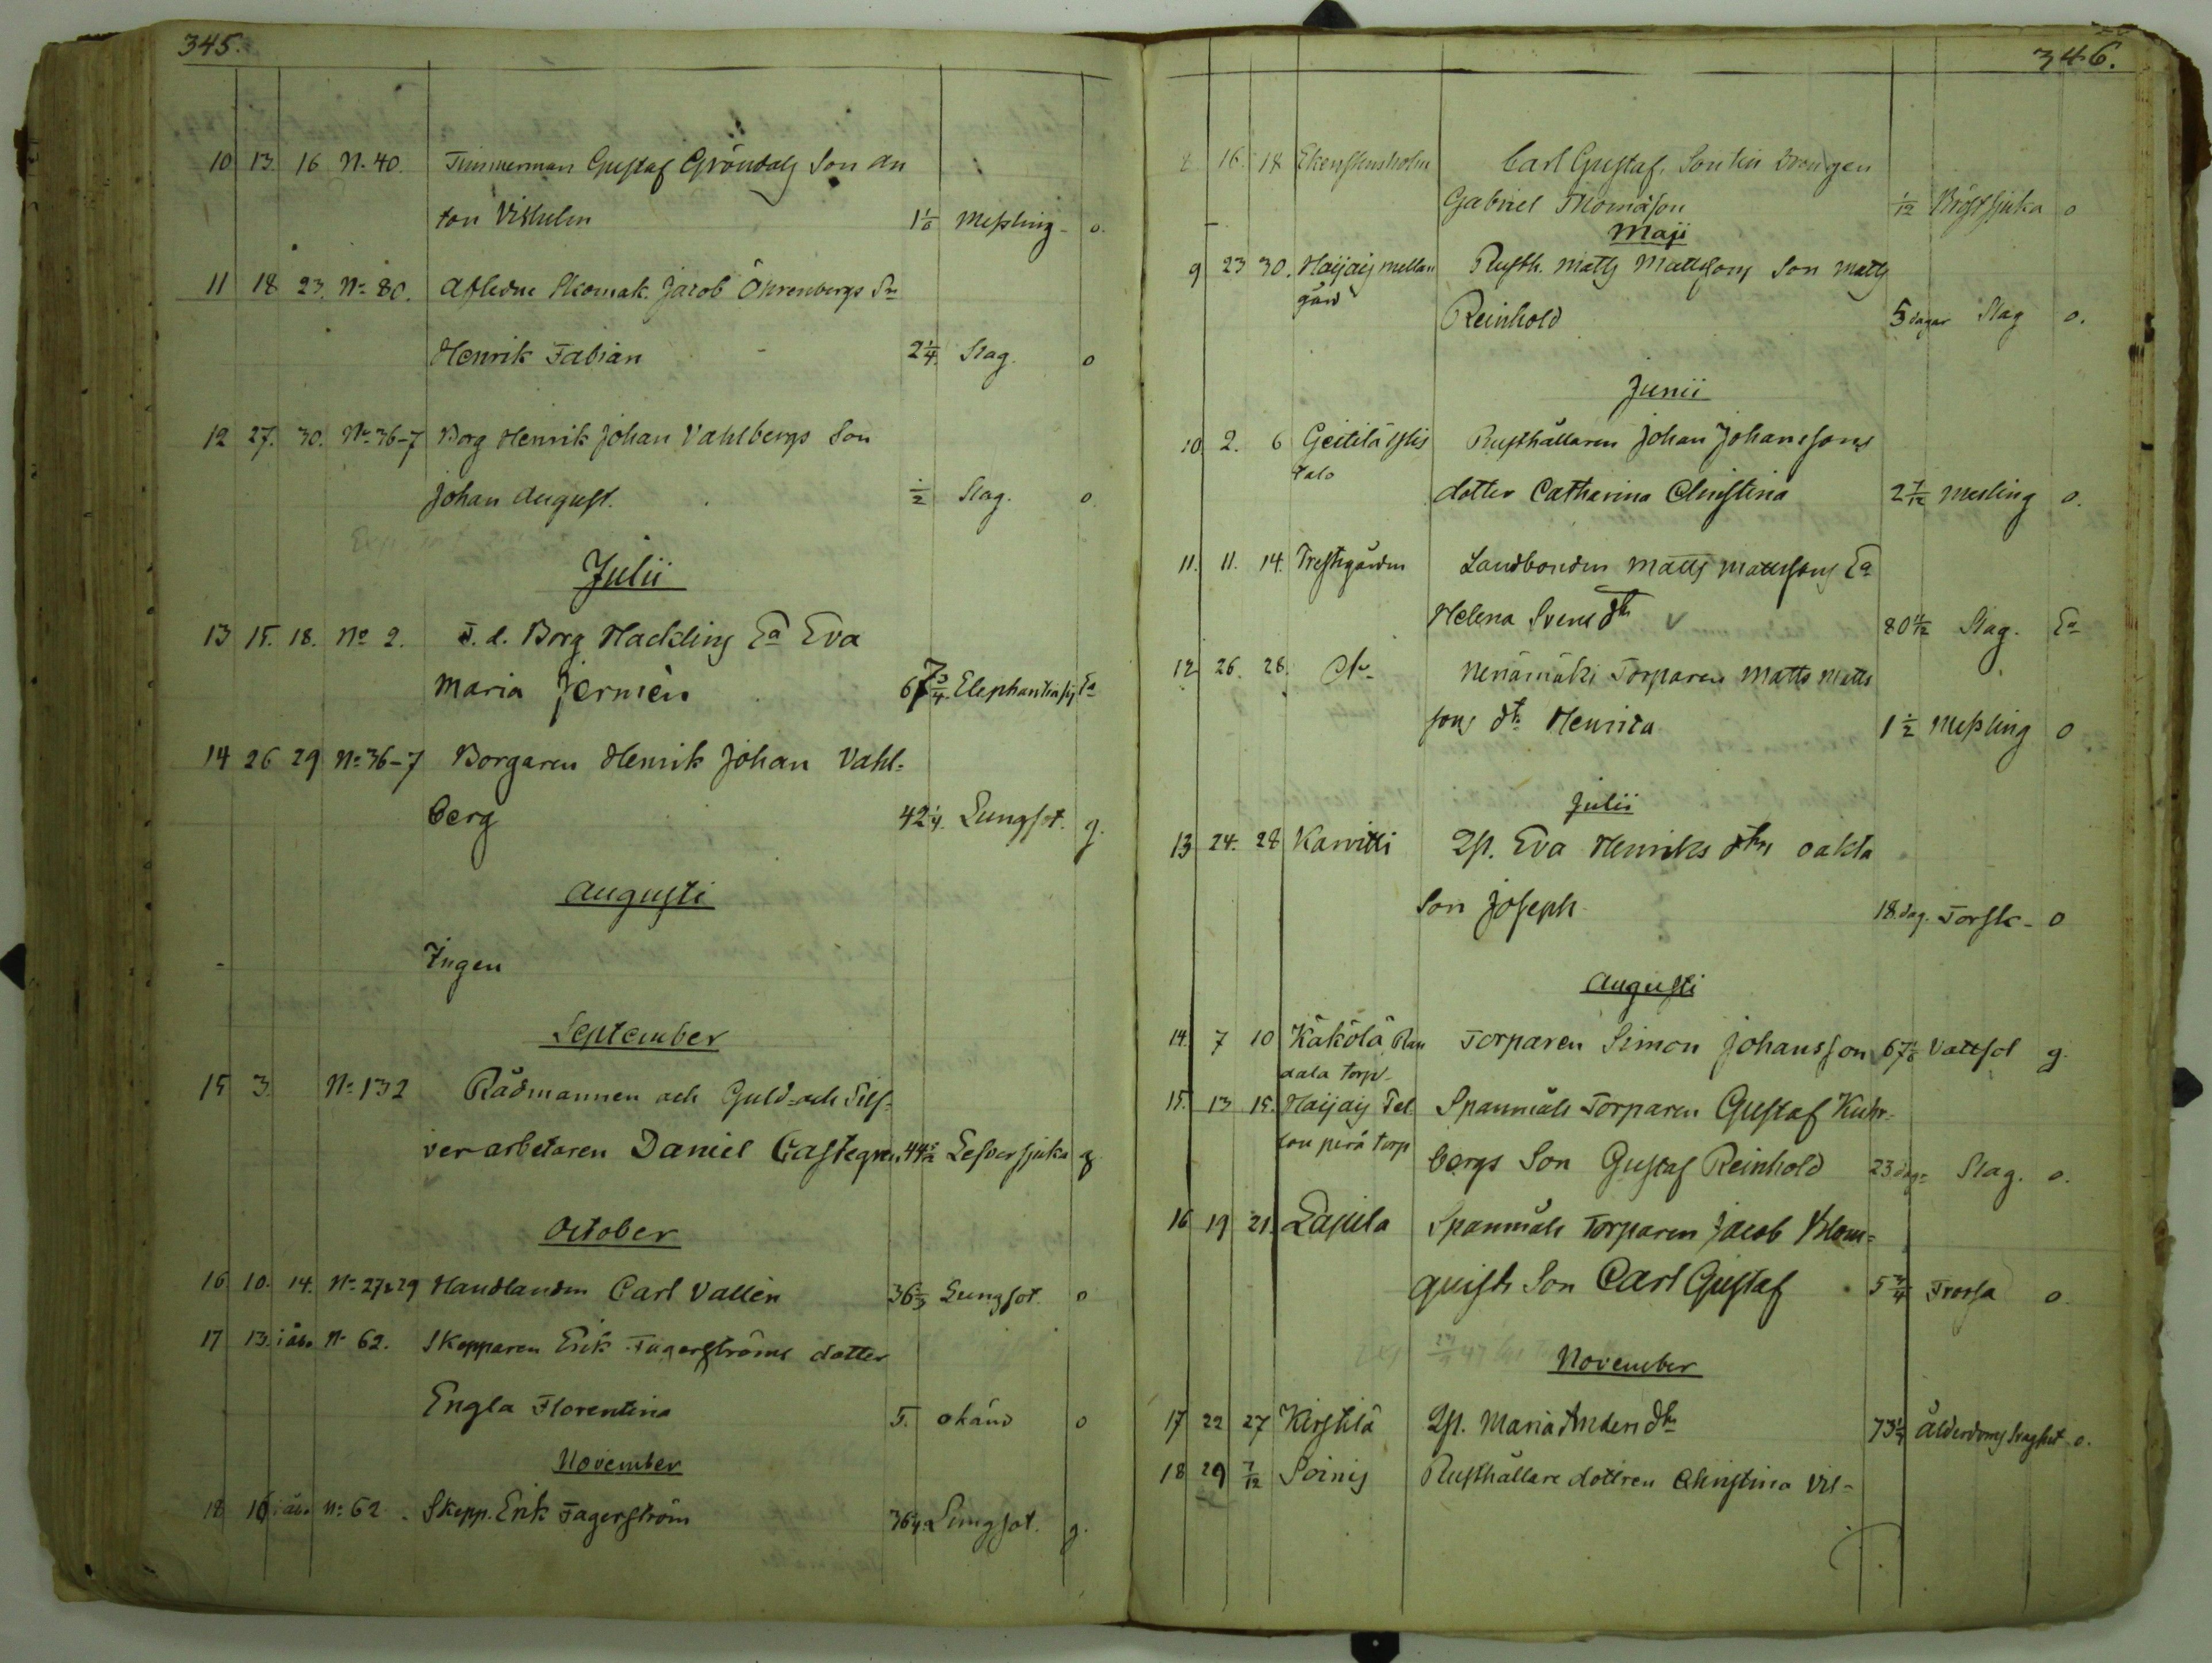 345.
10 13. 16 N. 40. Timmerman Gustaf Gröndals Son An
ton Vilhelm 1 1/6 Messling - o.
11 18 23. No 80. Afledne Skomak. Jacob Öhrenbergs Sn
Henrik Fabian 2 1/4. Slag. o
12 27. 30. No 36-7 Borg Henrik Johan Vahlbergs Son
Johan August. 1/2 Slag. o.
Julii
13 15. 18. No 2. F. d. Borg Hacklins Ea Eva
Maria Jernièn 67 3/4. Elephantiasis Ea
14 26 29 No 36-7 Borgaren Henrik Johan Vahl-
berg 42 1/4. Lungsot. g.
Augusti
Ingen
September
15 3. No 132 Rådmannen och Guld- och Silf-
verarbetaren Daniel Castegren 44 1/2 Lefversjuka g.
October
16 10. 14. No 27&29 Handlanden Carl Vallèn 36 2/3 Lungsot. o
17 13. i åbo No 62. Skepparen Erik Fagerströms dotter
Engla Florentina 5. okänd o
November
18 16 i åbo No 62. Skepp. Erik Fagerström 36 1/4. Lungsot. g.
346.
8. 16. 18 Ekensholm Carl Gustaf, Son till Drengen
Gabriel Thomasson 1/12 Bröstsjuka o
Maji
9 23 30. Haijais mellan Rusth. Matts Mattssons Son Matts
gård Reinhold 5 dagar Slag o.
Junii
10. 2. 6 Geitilä Ylis Rusthållaren Johan Johanssons
talo dotter Catharina Christina 2 7/12 Mesling o.
11. 11. 14. Prestgården Landbonden Matts Mattssons Ea
Helena Svens dtr 80 1/12 Slag. Ea
12 26. 28. Nenämäki Torparen Matts Matts
sons dtr Henrica 1 1/2 Messling o
Julii
13 24. 28 Karvitti Qp. Eva Henriks dtrs oäkta
Son Joseph 18. dag. Torsk - o
Augusti
14. 7 10 Käkölä Ran Torparen Simon Johansson 67 1/6 Vattsot g.
dala torp
15. 13 15. Haijais Pel Spanmåls Torparen Gustaf Kuhl-
lon perä torp bergs Son Gustaf Reinhold 23 dgr Slag. o.
16 19 21. Lapila Spanmåls Torparen Jacob Blom-
quists Son Carl Gustaf 5 3/4 Frossa o.
November
17 22 27 Kirstilä Qp. Maria Anders dtr 73 1/4 Ålderdoms svaghet o.
18 29 7/12 Soinis Rusthållare dottren Christina Vil-